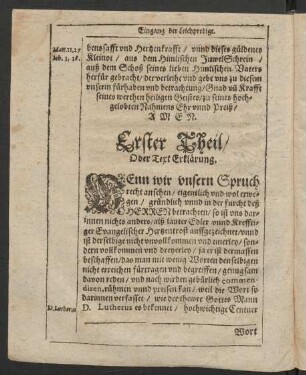 Eingang der Leichpredigt.
benssafft vnd Hertzenkrafft / vnnd dieses güldenes
Kleinot / aus dem Himlischen JuwelSchrein /
auß dem Schoß seines lieben Himlischen Vaters
herfür gebracht / der verleihe vnd gebe vns zu diesem
vnserm fürhaben vnd betrachtung / Gnad vñ Krafft
seines werthen heiligen Geistes / zu seines hoch-
gelobten Nahmens Ehr vnnd Preiß /
A M E N.
Erster Theil /
Oder Text Erklärung.
WEnn wir vnsern Spruch
recht ansehen / eigentlich vnd wol erwe-
gen / gründlich vnnd in der furcht deß
HERREN betrachten / so ist vns dar-
innen nichts anders / als lauter Edler vnnd Kreffti-
ger Evangelischer Hertzentrost auffgezeichnet / vnnd
ist derselbige nicht vnvollkommen vnd einerley / son-
dern vollkommen vnd dreyerley / ja er ist dermassen
beschaffen / das man mit wenig Worten denselbigen
nicht erreichen fürtragen vnd begreiffen / gnungsam
davon reden / vnd nach würden gebürlich commen-
diren, rühmen vnnd preisen kan / weil die Wort so
darinnen verfasset / wie der thewre Gottes Mann
D. Lutherus es bekennet / hochwichtige Centner
Wort
Matt. 11, 27
Joh. 1, 18.
D. Lutherus